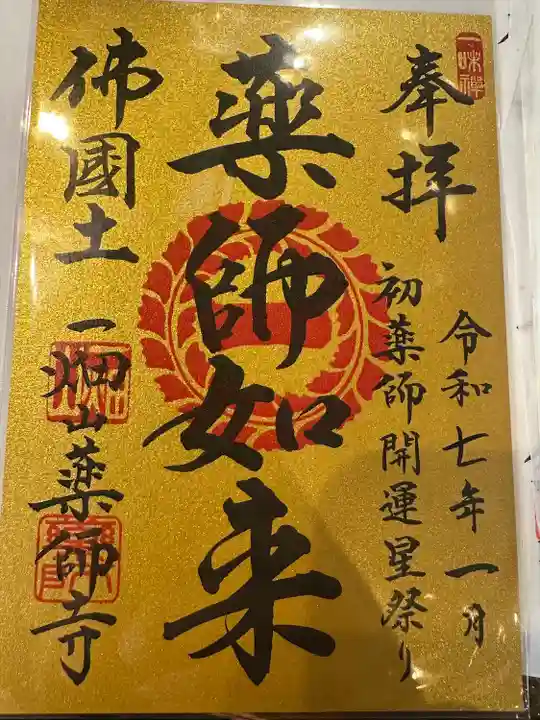 一味禪
奉拝
令和七年一月
初薬師開運星祭り
薬師如来
佛國土
一畑山薬師寺